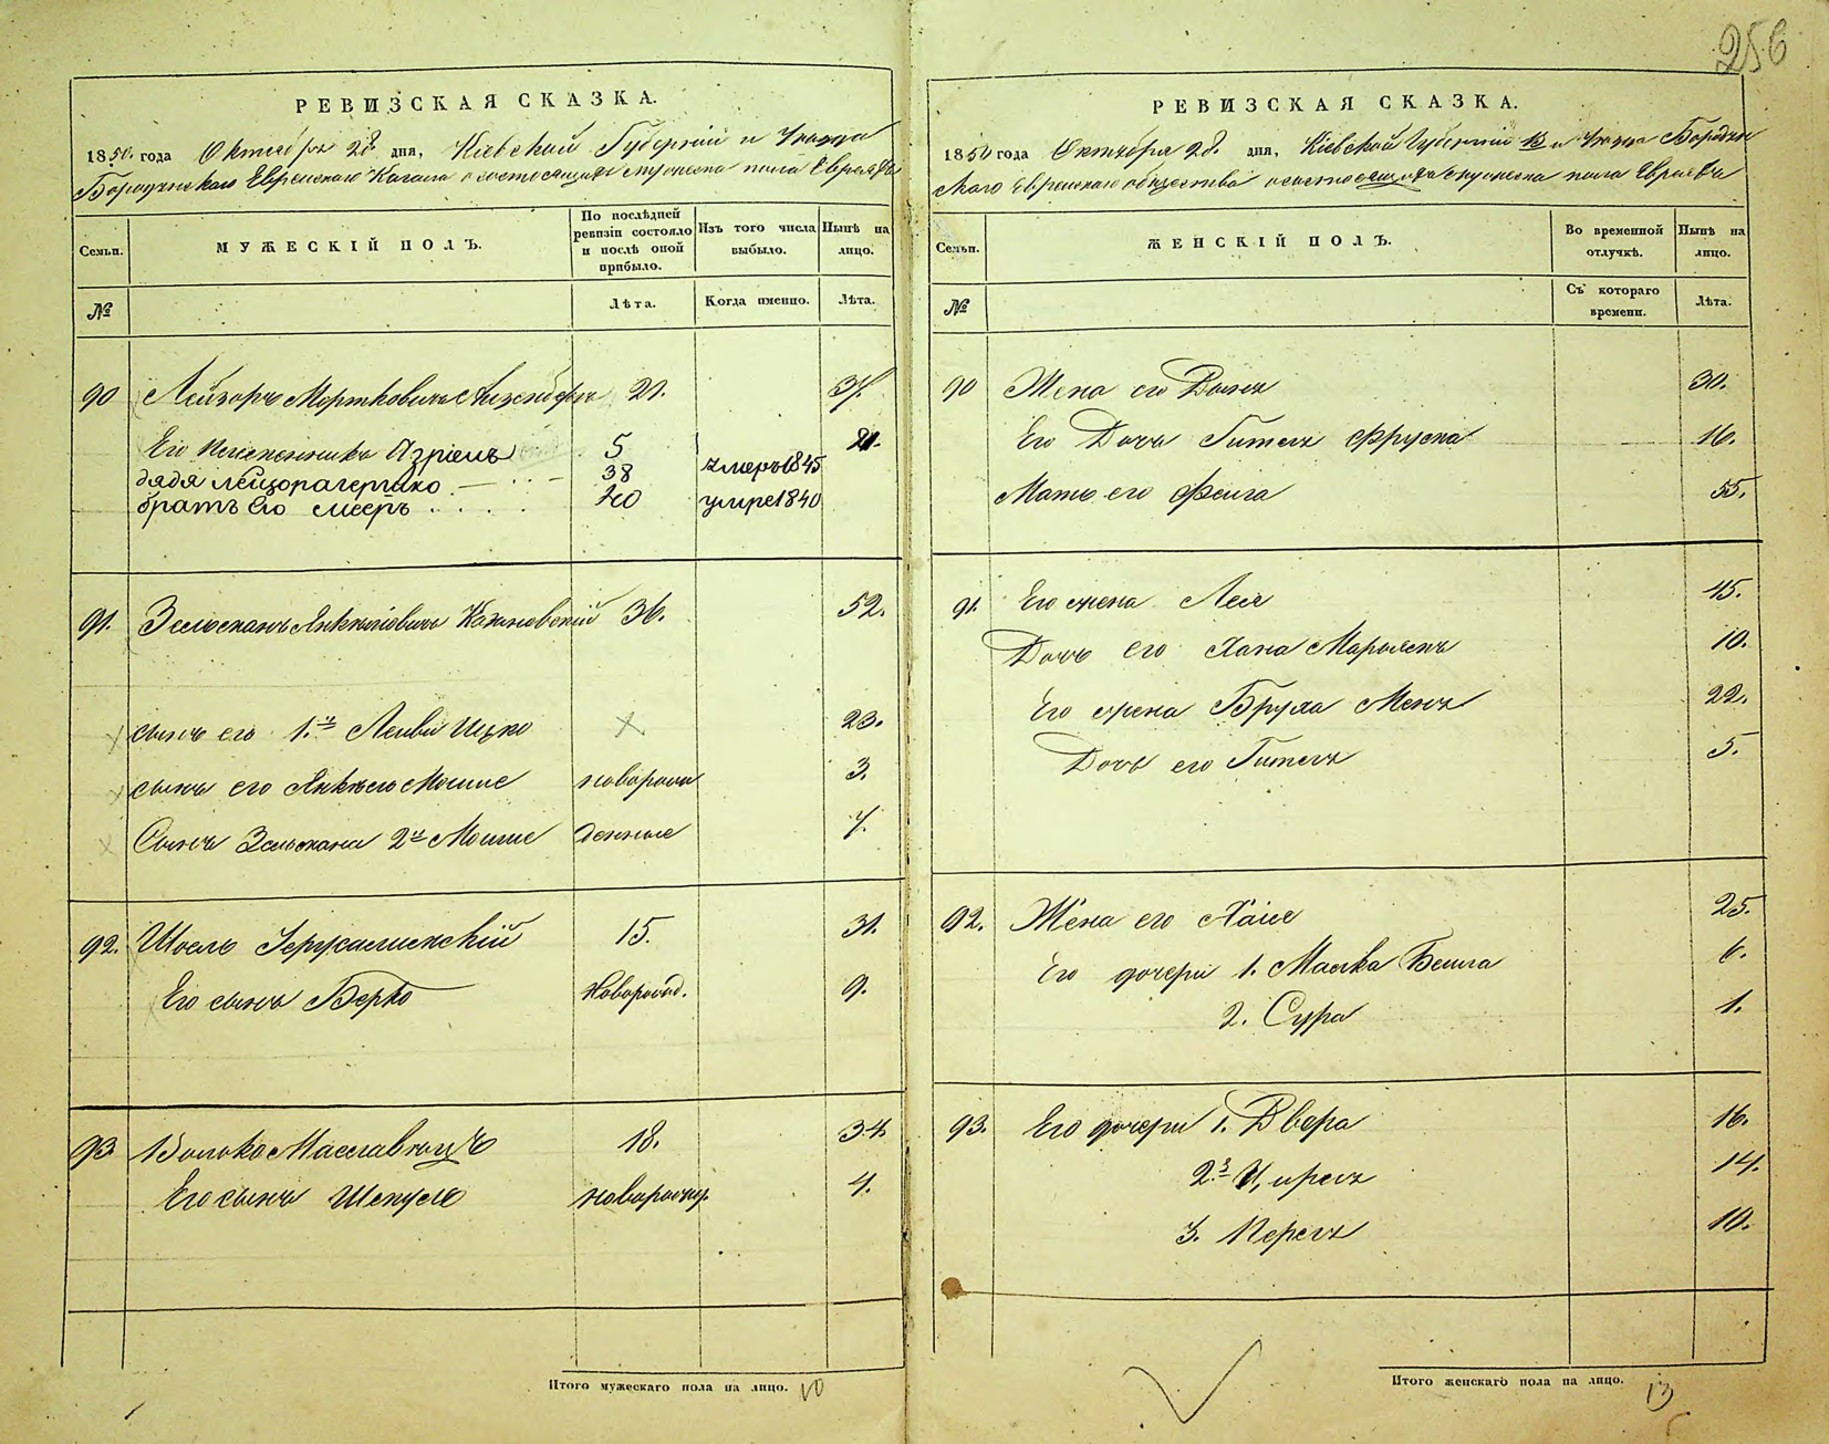 256
РЕВИЗСКАЯ СКАЗКА.
1850. года Октября 28. дня, Кіевской Губерніи и Уезда
Еврейскаго Кагала о состоящихъ мужеска пола Евреяхъ
Семьи.
МУЖЕСКІЙ ПОЛЪ.
По послѣдней ревизіи состояло и послѣ оной прибыло.
Изъ того числа выбыло.
Нынѣ на лицо.
№
Лѣта.
Когда именно.
Лѣта.
90 Лейзоръ Мортковичъ 21. 37.
Его племянникъ Азріель 5 21.
дядя 38 умеръ 1845
братъ Его 40 умре 1840
91. Зельманъ 36. 52.
сынъ его 1.й Лейви Ицко 23.
сынъ его Янкель Мошие новорож 3.
Сынъ Зельмана 2й Мошие денные 7.
92. Шоель Іерусалимскій 15. 31.
Его сынъ Берко Новорожд. 9.
93 18. 34
Его сынъ новорожд. 4.
Итого мужескаго пола на лицо. 10
РЕВИЗСКАЯ СКАЗКА.
1850 года Октября 28. дня, Кіевской Губерніи и Уезда
Еврейскаго общества о состоящихъ мужеска пола Евреяхъ
Семьи.
ЖЕНСКІЙ ПОЛЪ.
Во временной отлучкѣ.
Нынѣ на лицо.
№
Съ котораго времени.
Лѣта.
90 Жена его 30.
Его Дочь Гитля Фрума 16.
Мать его Фейга 55.
91. Его жена Лея 45.
Дочь его Хана Марьямъ 10.
Его жена Бруха 22.
Дочь его Гитля 5.
92. Жена его Хаия 25.
Его дочери 1. Малка Бейла 6.
2. Сура 1.
93. Его дочери 1. Двера 16.
2.я 14.
3. Перля 10.
Итого женскаго пола на лицо. 13